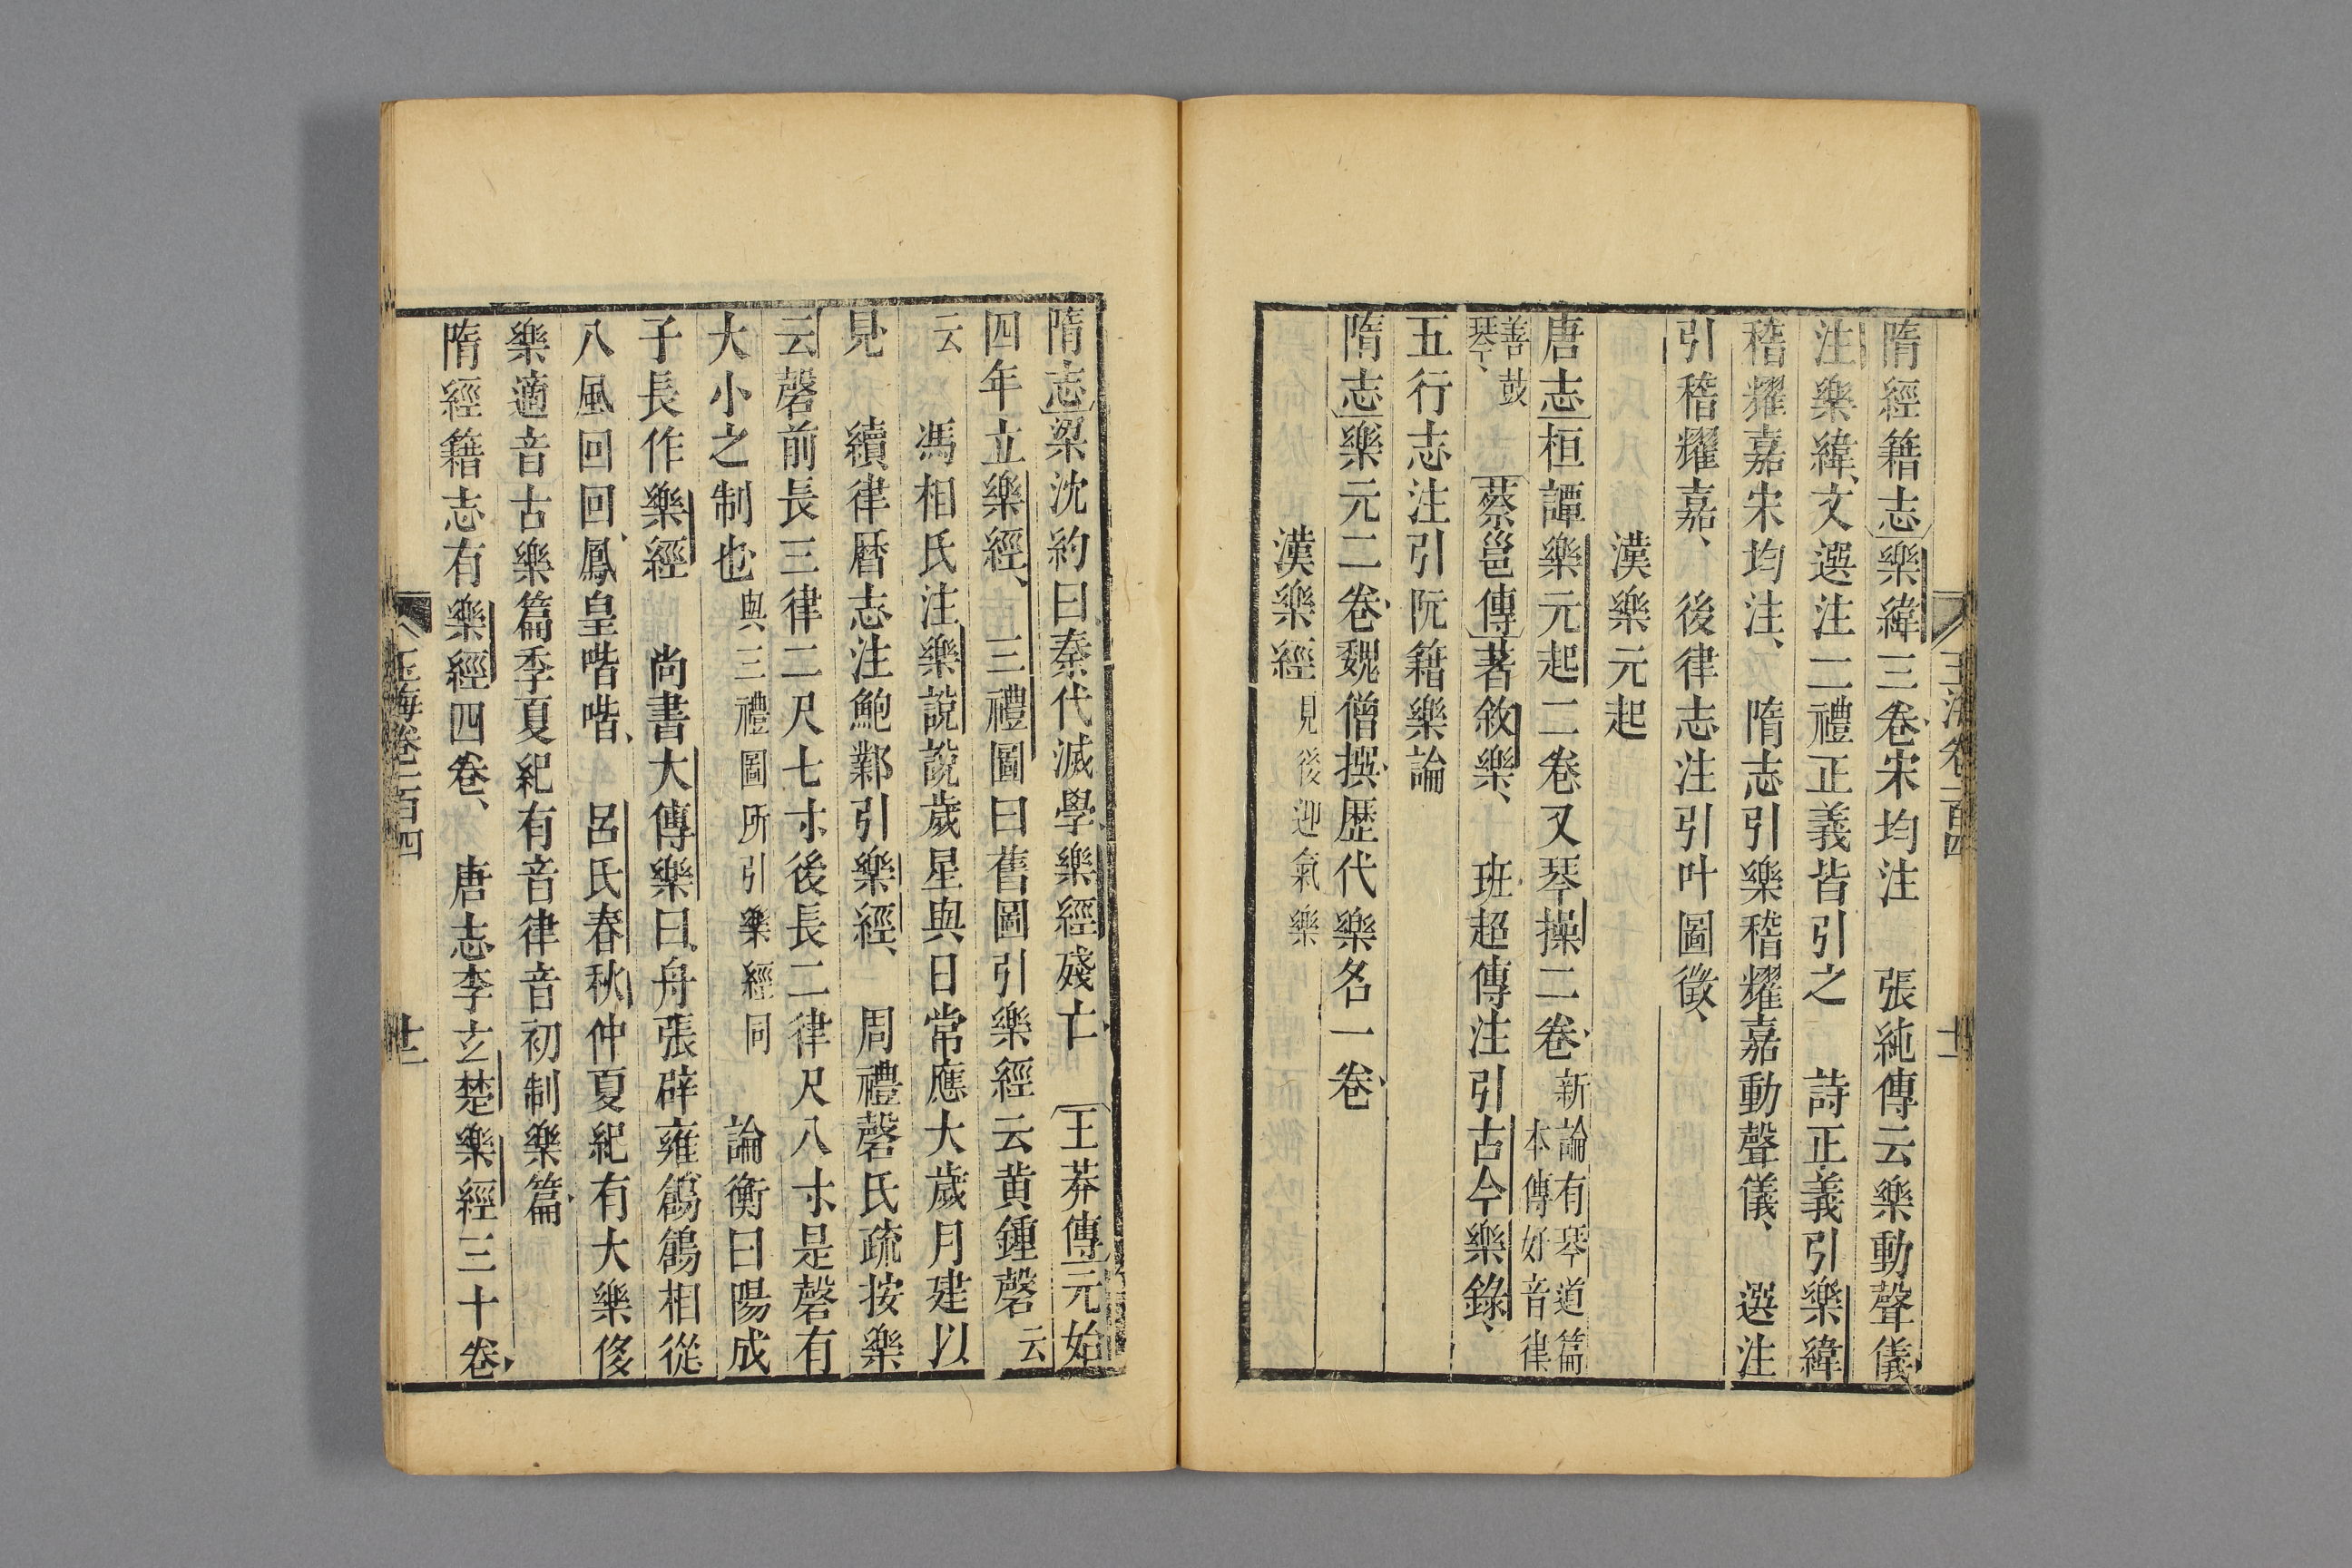 隋經籍志樂緯三卷宋均注　張純傳云樂動聲儀
注樂緯文選注二禮正義皆引之　詩正義引樂緯
稽耀嘉宋均注　隋志引樂稽耀嘉動聲儀　選注
引稽耀嘉　後律志注引叶圖徵
漢樂元起
唐志桓譚樂元起二卷又琴操二卷新論有琴道篇本傳好音律
善鼓琴　蔡邕傳著敘樂　班超傳注引古今樂錄
五行志注引阮籍樂論
隋志樂元二卷魏僧撰歷代樂名一卷
漢樂經見後迎氣樂
隋志梁沈約曰秦代滅學樂經殘亡　王莽傳元始
四年立樂經　三禮圖曰舊圖引樂經云黄鍾磬云
云　馮相氏注樂說說歲星與日常應大歲月建以
見　續律暦志注鮑鄴引樂經　周禮磬氏疏按樂
云磬前長三律二尺七寸後長二律尺八寸是磬有
大小之制也與三禮圖所引樂經同　論衡曰陽成
子長作樂經　尚書大傳樂曰舟張辟雍鶬鶬相從
八風回回鳳皇喈喈　呂氏春秋仲夏紀有大樂侈
樂適音古樂篇季夏紀有音律音初制樂篇
隋經籍志有樂經四卷　唐志李玄楚樂經三十卷
玉海卷一百四
十二